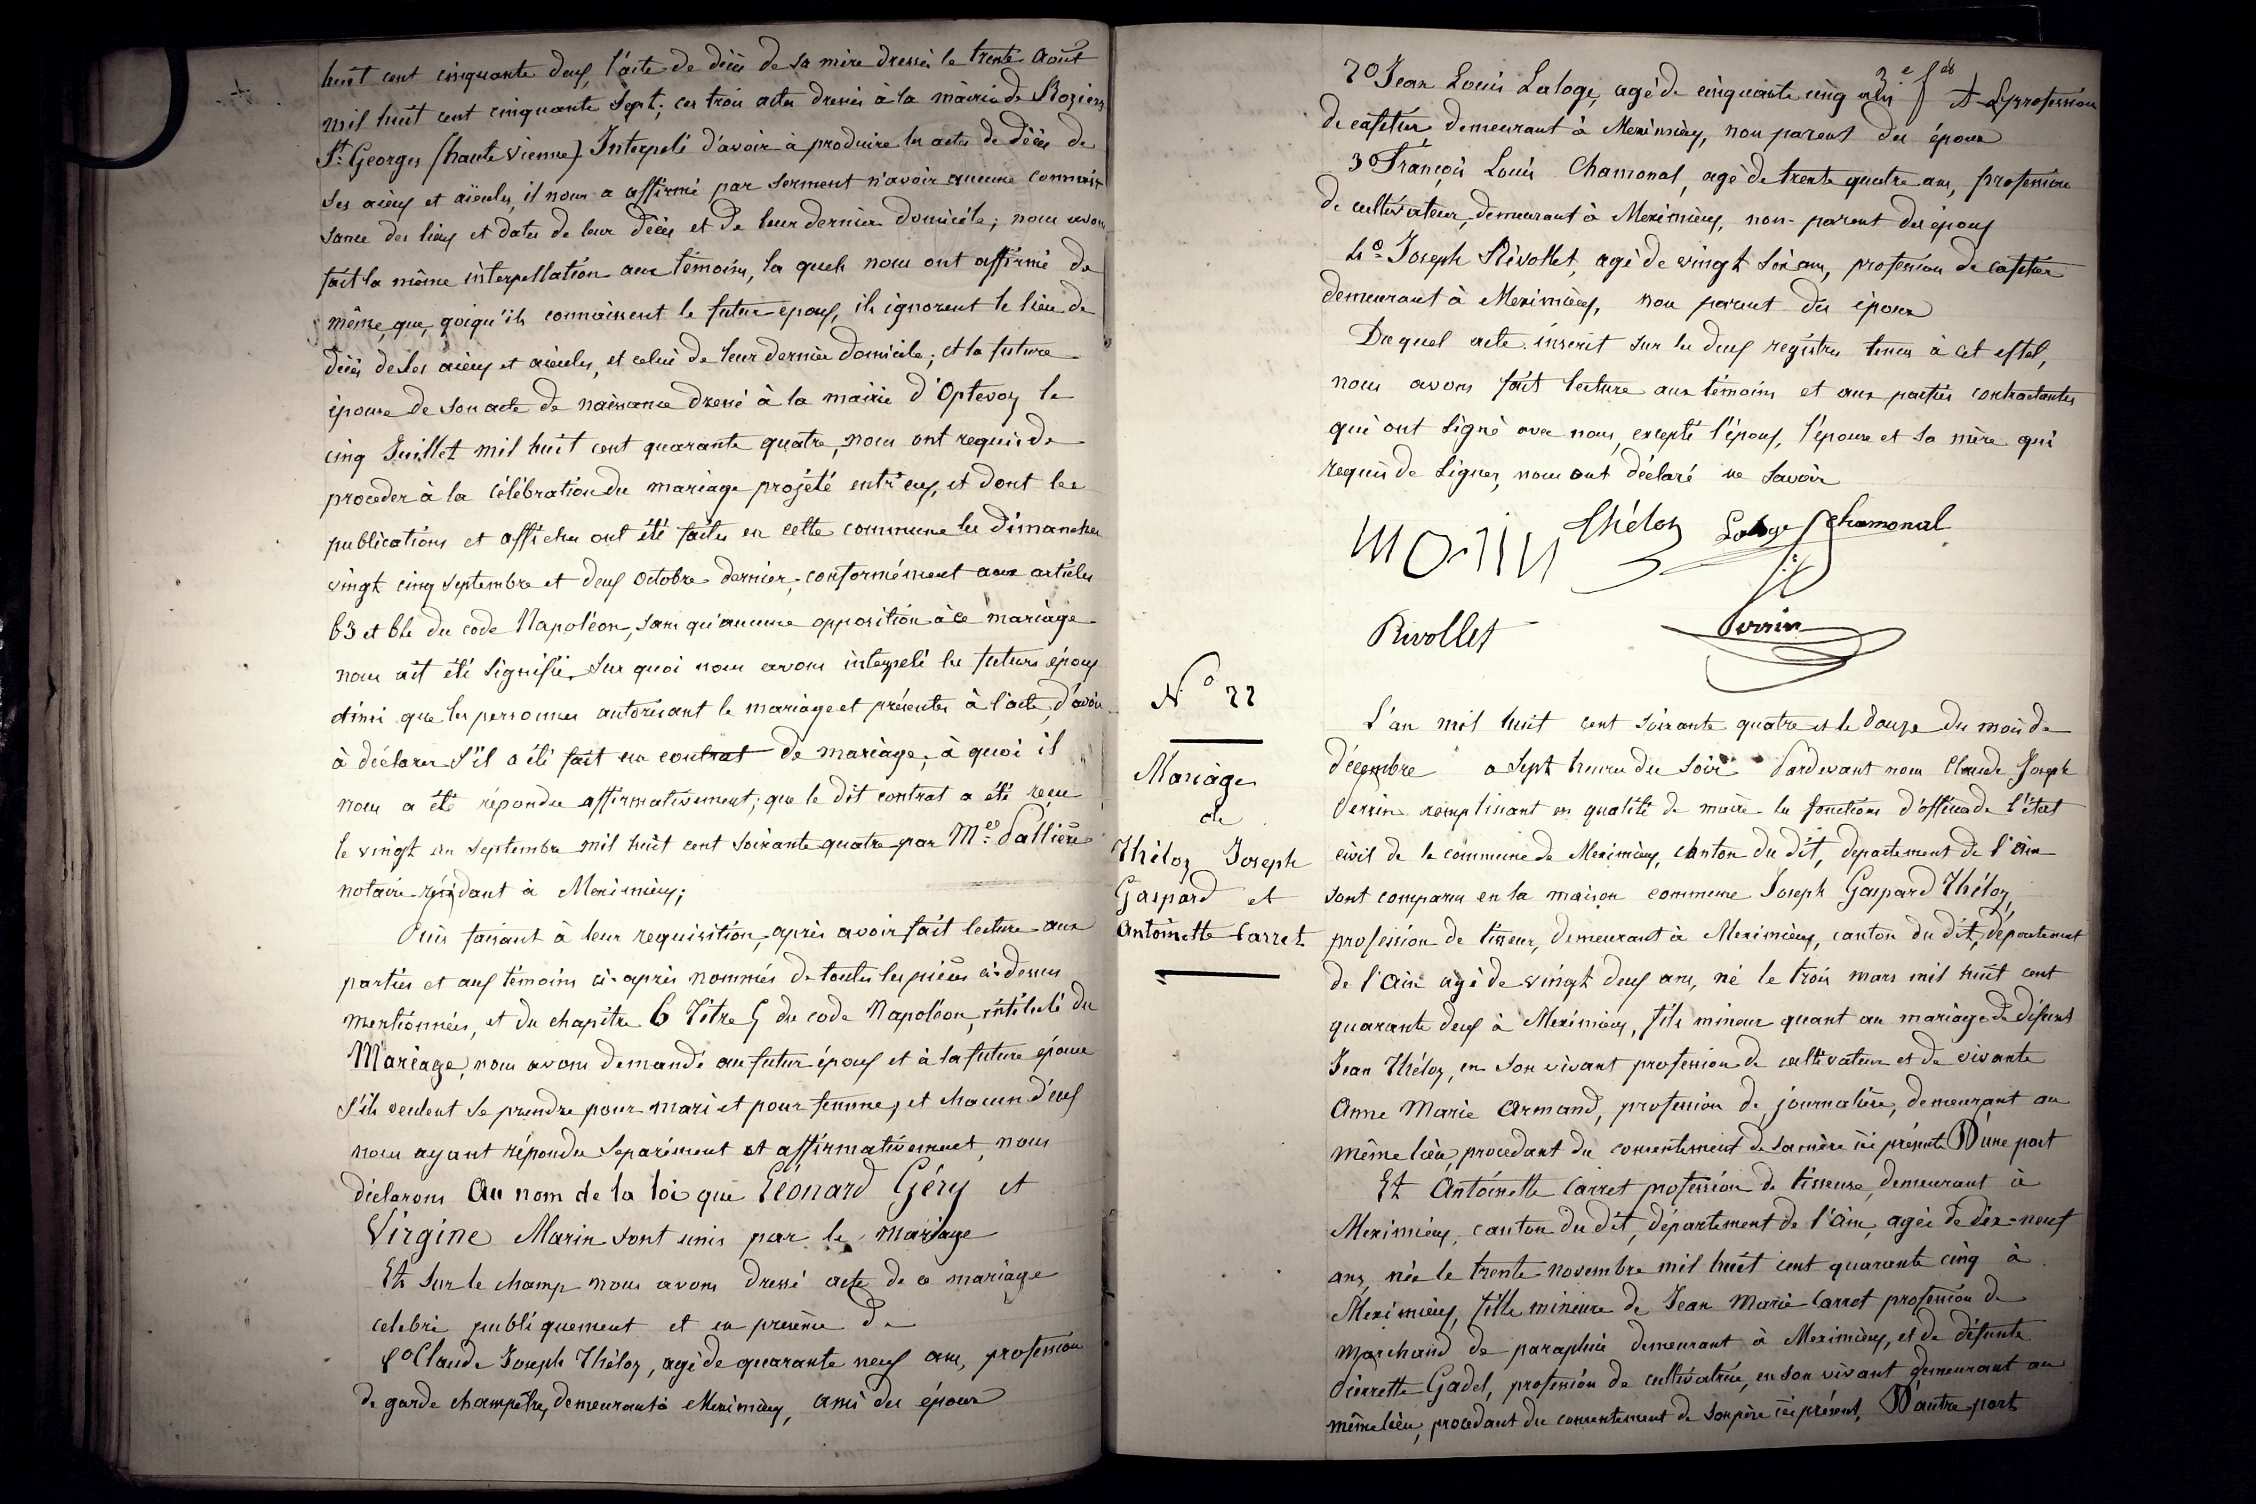 huit cent cinquante deux, l'acte de décès de sa mère dressé le trente Août
mil huit cent cinquante sept; ces trois actes dressés à la mairie de Roziers
St Georges (haute Vienne). Interpelé d'avoir à produire les actes de décès de
ses aïeux et aïeules, il nous a affirmé par serment n'avoir aucune connais
sance des lieux et dates de leur décès et de leur dernier domicile; nous avons
fait la même interpellation aux témoins, la quels nous ont affirmé de
même que, qoiqu'ils connaissent le futur époux, ils ignorent le lieu de
décès de ses aïeux et aïeules, et celui de leur dernier domicile; et la future
épouse de son acte de naissance dressé à la mairie d'Optevoz le
cinq Juillet mil huit cent quarante quatre, nous ont requis de
proceder à la célébration du mariage projété entr'eux, et dont les
publications et affiches ont été faites en cette commune les dimanches
vingt cinq septembre et deux octobre dernier, conformément aux articles
63 et 64 du code Napoléon, sans qu'aucune opposition à ce mariage
nous ait été signifié. Sur quoi nous avons interpelé les futurs époux
ainsi que les personnes autorisant le mariage et présentes à l'acte, d'avoir
à déclarer s'il a été fait un contrat de mariage; à quoi il
nous a été répondu affirmativement; que le dit contrat a été reçu
le vingt un septembre mil huit cent soixante quatre par Me Pallière
notaire résidant à Meximieux;
Puis faisant à leur requisition, après avoir fait lecture aux
parties et aux témoins ci-après nommés de toutes les pièces ci-dessus
mentionnées, et du chapitre 6 Titre 5 du code Napoléon, intitulé du
Mariage, nous avons demandé au futur époux et à la future épouse
s'ils veulent se prendre pour mari et pour femme, et chacun d'eux
nous ayant répondu séparément et affirmativement, nous
déclarons Au nom de la loi que Léonard Géry et
Virgine Marin sont unis par le mariage
Et sur le champ nous avons dressé acte de ce mariage
celebré publiquement et en présence de
1o Claude Joseph Théloz, agé de quarante neuf ans, profession
de garde champêtre, demeurant à Meximieux, ami des époux
2o Jean Louis Laloge, agé de cinquante cinq ans profession
de cafetier demeurant à Meximieux, non parent des époux
3o François Louis Chamonal, agé de trente quatre ans, profession
de cultivateur, demeurant à Meximieux, non-parent des époux
4o Joseph Rivollet, agé de vingt six ans, profession de cafetier
demeurant à Meximieux, non parent des époux
Du quel acte inscrit sur les deux registres tenus à cet effet,
nous avons fait lecture aux témoins et aux parties contractantes
qui ont signé avec nous, excepté l'époux, l'épouse et sa mère qui
requis de signer, nous ont déclaré ne savoir
Morin Théloz Laloge Chamonal
Rivollet Perrin
No 22
Mariage
de
Théloz Joseph
Gaspard et
Antoinette Carret
L'an mil huit cent soixante quatre et le douze du mois de
décembre a sept heures du soir Pardevant nous Claude Joseph
Perrin remplissant en qualité de maire les fonctions d'officier de l'état
civil de la commune de Meximieux, canton du dit, département de l'ain
sont comparus en la maison commune Joseph Gaspard Théloz,
profession de tisseur, demeurant à Meximieux, canton du dit, département
de l'Ain agé de vingt deux ans, né le trois mars mil huit cent
quarante deux à Meximieux, fils mineur quant au mariage de défunt
Jean Théloz, en son vivant profession de cultivateur et de vivante
Anne Marie Armand, profession de journalière, demeurant au
même lieu, procedant du consentement de sa mère ici présente D'une part
Et Antoinette Carret profession de tisseuse, demeurant à
Meximieux, canton du dit, département de l'Ain, agée de dix-neuf
ans, née le trente novembre mil huit cent quarante cinq à
Meximieux, fille mineure de Jean Marie Carret profession de
marchand de parapluie demeurant à Meximieux, et de défunte
Pierrette Gadel, profession de cultivatrice, en son vivant demeurant au
même lieu, procedant du consentement de son père ici présent, D'autre part